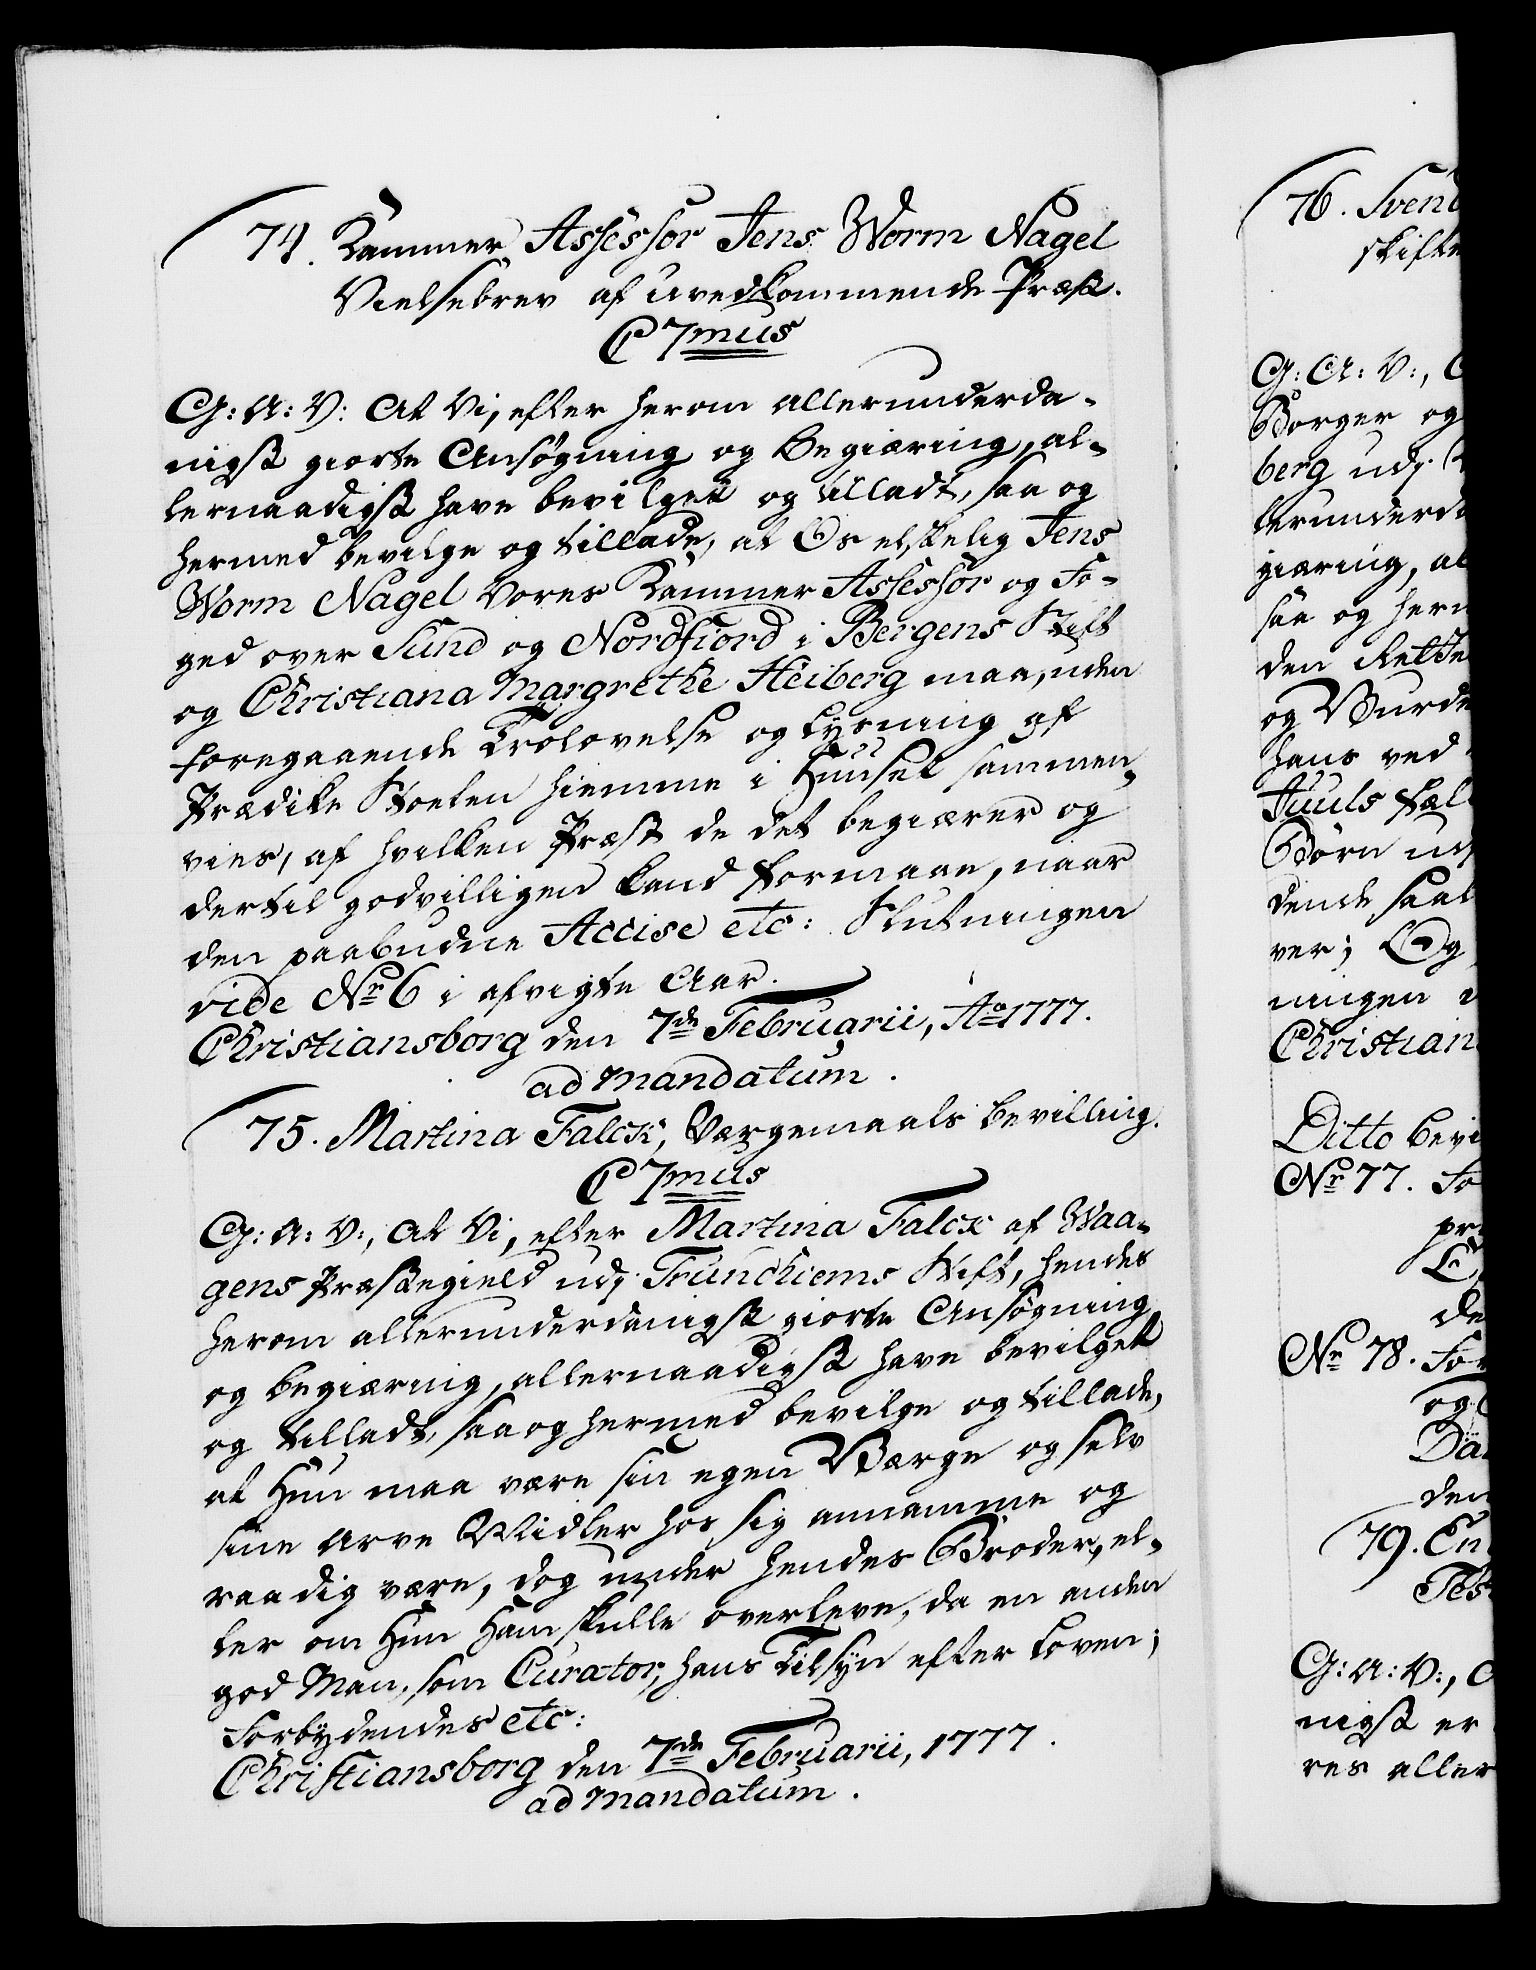 74. Kammer Assessor Jens Worm Nagel
Vielsebrev af uvedkommende Præst.
C 7mus
G: A: V: At Vi, efter herom allerunderda-
nigst giorte Ansøgning og Begiæring, al-
lernaadigst have bevilget og tilladt, saa og
hermed bevilge og tillade, at Os elskelig Jens
Worm Nagel Vores Kammer Assessor og Fo-
ged over Sund og Nordfiord i Bergens Stift
og Christiana Margrethe Heiberg maa, uden
foregaaende Trolovelse og Lysning af
Prædike Stoelen hiemme i Huuset sammen-
vies, af hvilken Præst de det begiærer og
dertil godvilligen kand formaae, naar
den paabudne Accise etc: Slutningen
vide Nr 6 i afvigte Aar.
Christiansborg den 7de Februarii, Ao 1777.
ad mandatum.
75. Martina Falck, Værgemaals bevilling.
C 7mus
G: A: V:, At Vi, efter Martina Falck af Waa-
gens Præstegield udj Trundhiems Stift, hendes
herom allerunderdanigst giorte Ansøgning
og begiæring, allernaadigst have bevilget
og tilladt, saa og hermed bevilge og tillade,
at Hun maa være sin egen Værge og selv
sine Arve Midler hos sig annamme og
raadig være, dog under hendes Broder, el-
ler om Hun Ham skulle overleve, da en anden
god Man, som Curator, hans Tilsyn efter Loven;
Forbydendes etc:
Christiansborg den 7de Februarii, 1777.
ad mandatum.
76. Svend
skifte
G: A: V:,
Borger og
berg udj
lerunderda
giæring, al
saa og herm
den Rette
og Vurde
hans ved
Juuls fæl
Børn ud
dende saal
ver; Og
ningen
Christian
Ditto bevi
Nr 77. Fo
pr
de
Nr 78. For
og
Da
den
79. En
Tes
G: A: V:,
nigst er
res aller